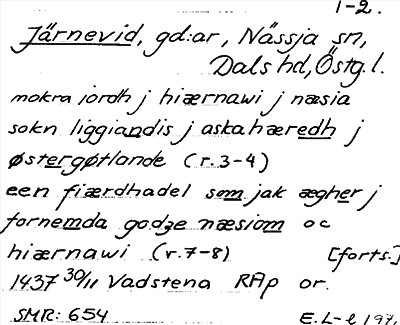 1-2.
Järnevid, gd:ar, Nässja sn,
Dals hd, Östg. l.
mokra iordh j hiærnawi j næsia
sokn liggiandis j askahæredh j
østergøtlande (r.3-4)
een fiærdhadel som jak ægher j
fornemda godze næsiom oc
hiærnawi (r.7-8) [forts.]
1437 30/11 Vadstena RAp or.
SMR: 654 E.L-l 197